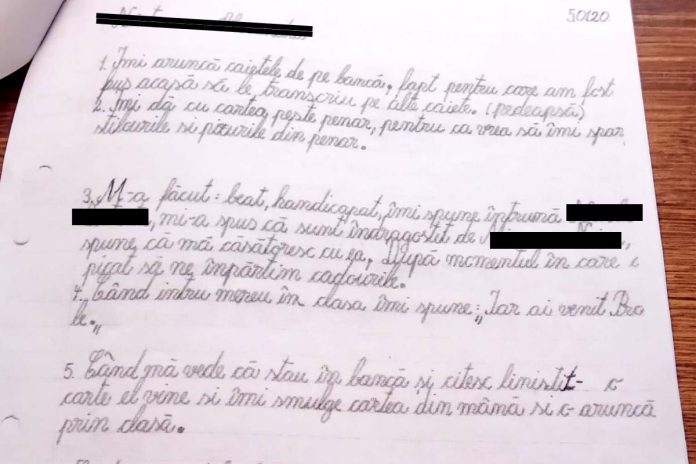 50120
1. Îmi aruncă caietele de pe bancă, fapt pentru care am fost
pus acasă să le transcriu pe alte caiete. (pedeapsă)
2. Îmi dă cu cartea peste penar, pentru ca vrea să îmi spar
stilourile si pixurile din penar.
3. M-a făcut: beat, handicapat, îmi spune întruna
, mi-a spus că sunt îndragostit de
spune că mă casătoresc cu ea, După momentul în care i
picat să ne împărtim cadourile.
4. Când intru mereu în clasa îmi spune: „Iar ai venit Bro
le.„
5. Când mă vede că stau în bancă si citesc linistit- o
carte el vine si îmi smulge cartea din mână si o aruncă
prin clasă.